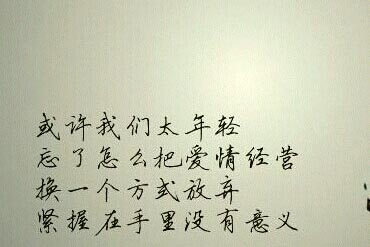 或许我们太年轻
忘了怎么把爱情经营
换一个方式放弃
紧握在手里没有意义